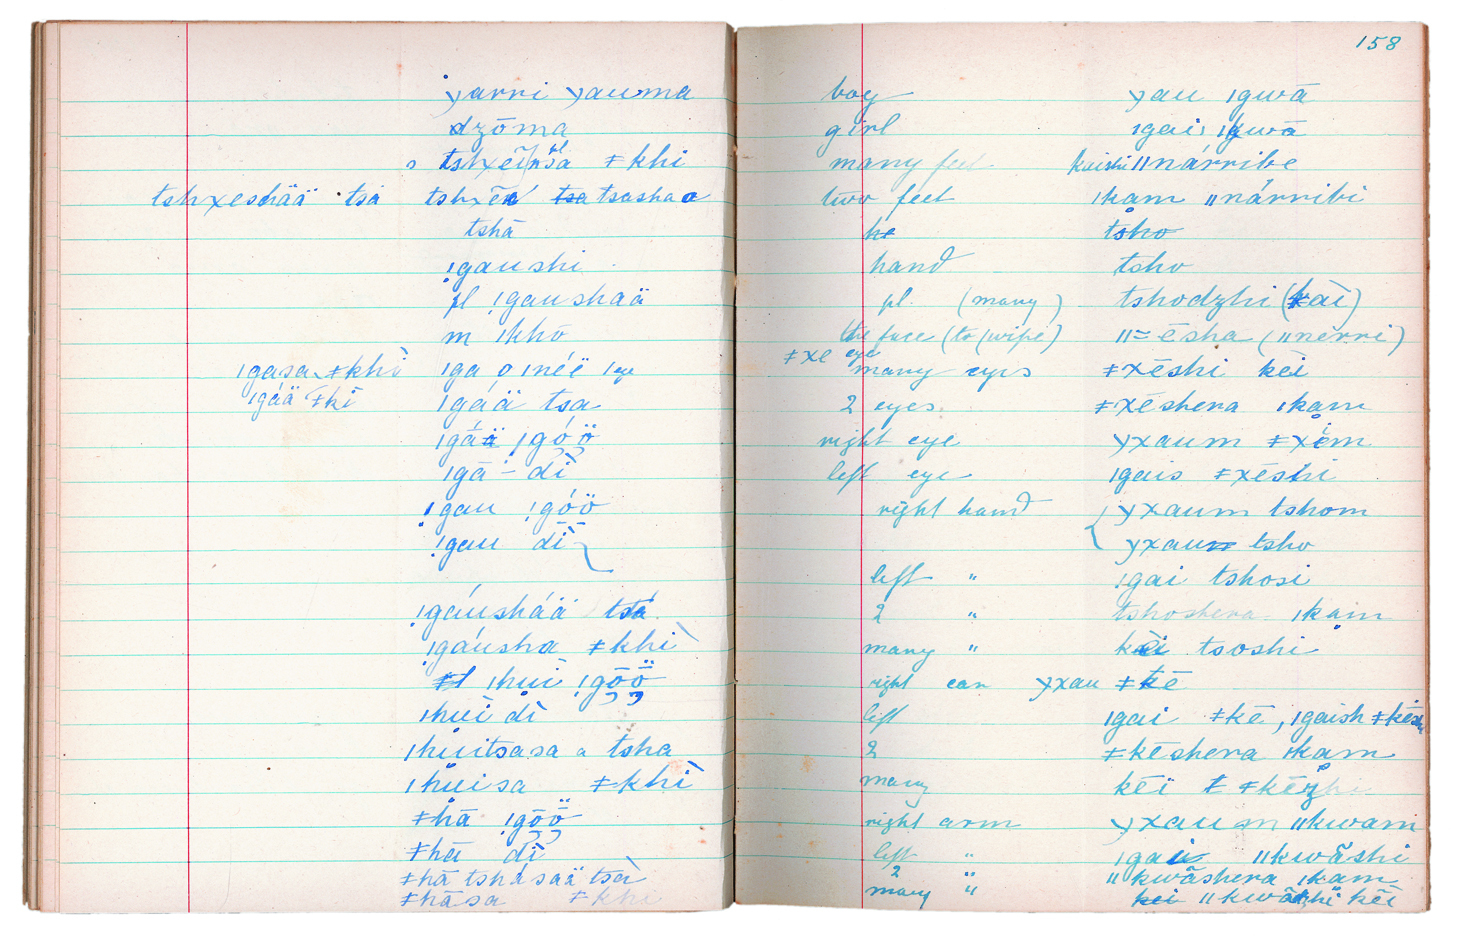 yarri yauma
dzōma
tshxēi ≠khi
tshxeshää tsa tshxēn tsa tsashaa
tshā
ǃgaushi
pl ǃgaushaä
m ǀkhō
ǀgasa ≠khì ǀga o ǀnéï
ǀgáä ≠kì ǀgáä tsa
ǀgáä ǀgóö
ǀgā - dì
ǃgau ǃgóö
ǃgau dì
ǃgáushää tsá
ǃgáusha ≠khì
ǀhuì ǃgōö
ǀhuì dì
ǀhuitsasa a tsha
ǀhuisa ≠khì
≠hā ǃgōö
≠hā dì
≠hā tshásaä tsà
≠hāsa ≠khi
158
boy yau ǀgwā
girl ǀgai ǀgwā
many feet kaishi ǁnárribe
two feet ǀkam ǁnárribi
he tsho
hand tsho
pl. (many) tshodzhi (kāi)
the face (to wipe) ǁ= ēsha (ǁnerri)
≠xe eye
many eyes ≠xēshi kēi
2 eyes ≠xēshera ǀkam
right eye yxaum ≠xēm
left eye ǀgais ≠xēshi
right hand yxaum tshom
yxaum tsho
left " ǀgai tshosi
2 " tshoshera ǀkam
many " kēi tsoshi
right ear yxau ≠kē
left ǀgai ≠kē, ǀgaish
2 ≠kēshera ǀkam
many kēi ≠ ≠kēzhi
right arm yxaum ǁkwam
left " ǀgai ǁkwāshi
2 " ǁkwāshera ǀkam
many " kei ǁkwāzhi kēi